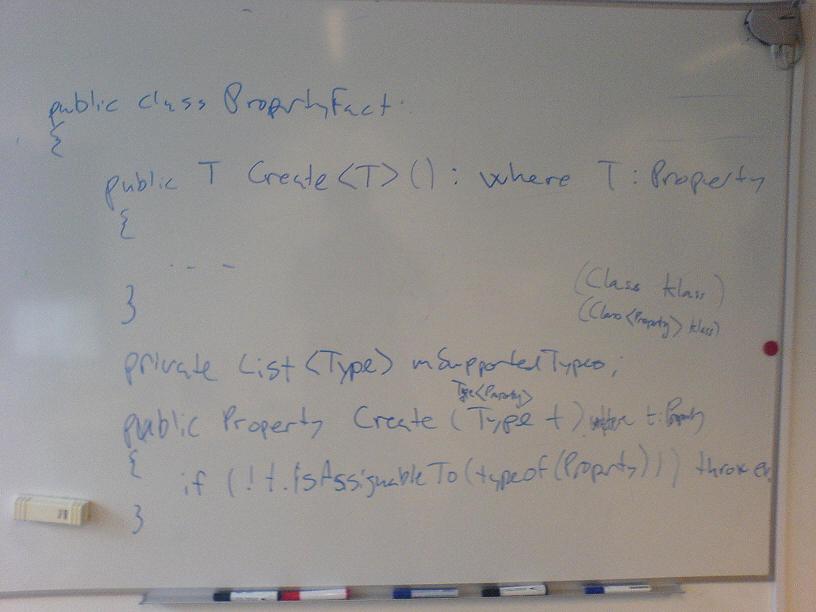 public class PropertyFact
{
public T Create<T>() : where T : Property
{
. - -
}
(Class klass)
(Class<Property> klass)
private List<Type> mSupportedTypes;
Type<Property>
public Property Create (Type t) where t: Property
{
if (! t.IsAssignableTo(typeof(Property))) throw ex
}